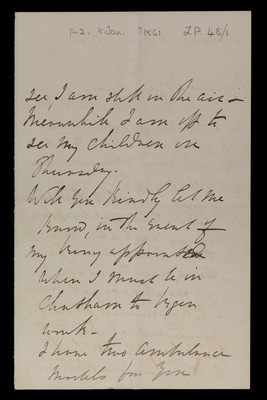 F2. 8 Jan ?1861 LP. 48/1
see, I am still in the air –
Meanwhile I am off to
see my children on
Thursday.
Will you kindly let me
know, in the event of
my being appointed
when I must be in
Chatham to begin
work –
I have two ambulance
models for you